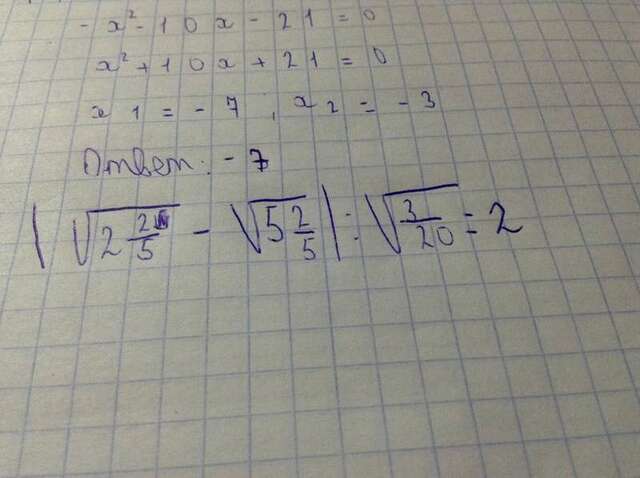 - x² - 10x - 21 = 0
x² + 10x + 21 = 0
x1 = - 7 ; x2 = - 3
Ответ: - 7
|√(2 2/5) - √(5 2/5)| : √(3/20) = 2